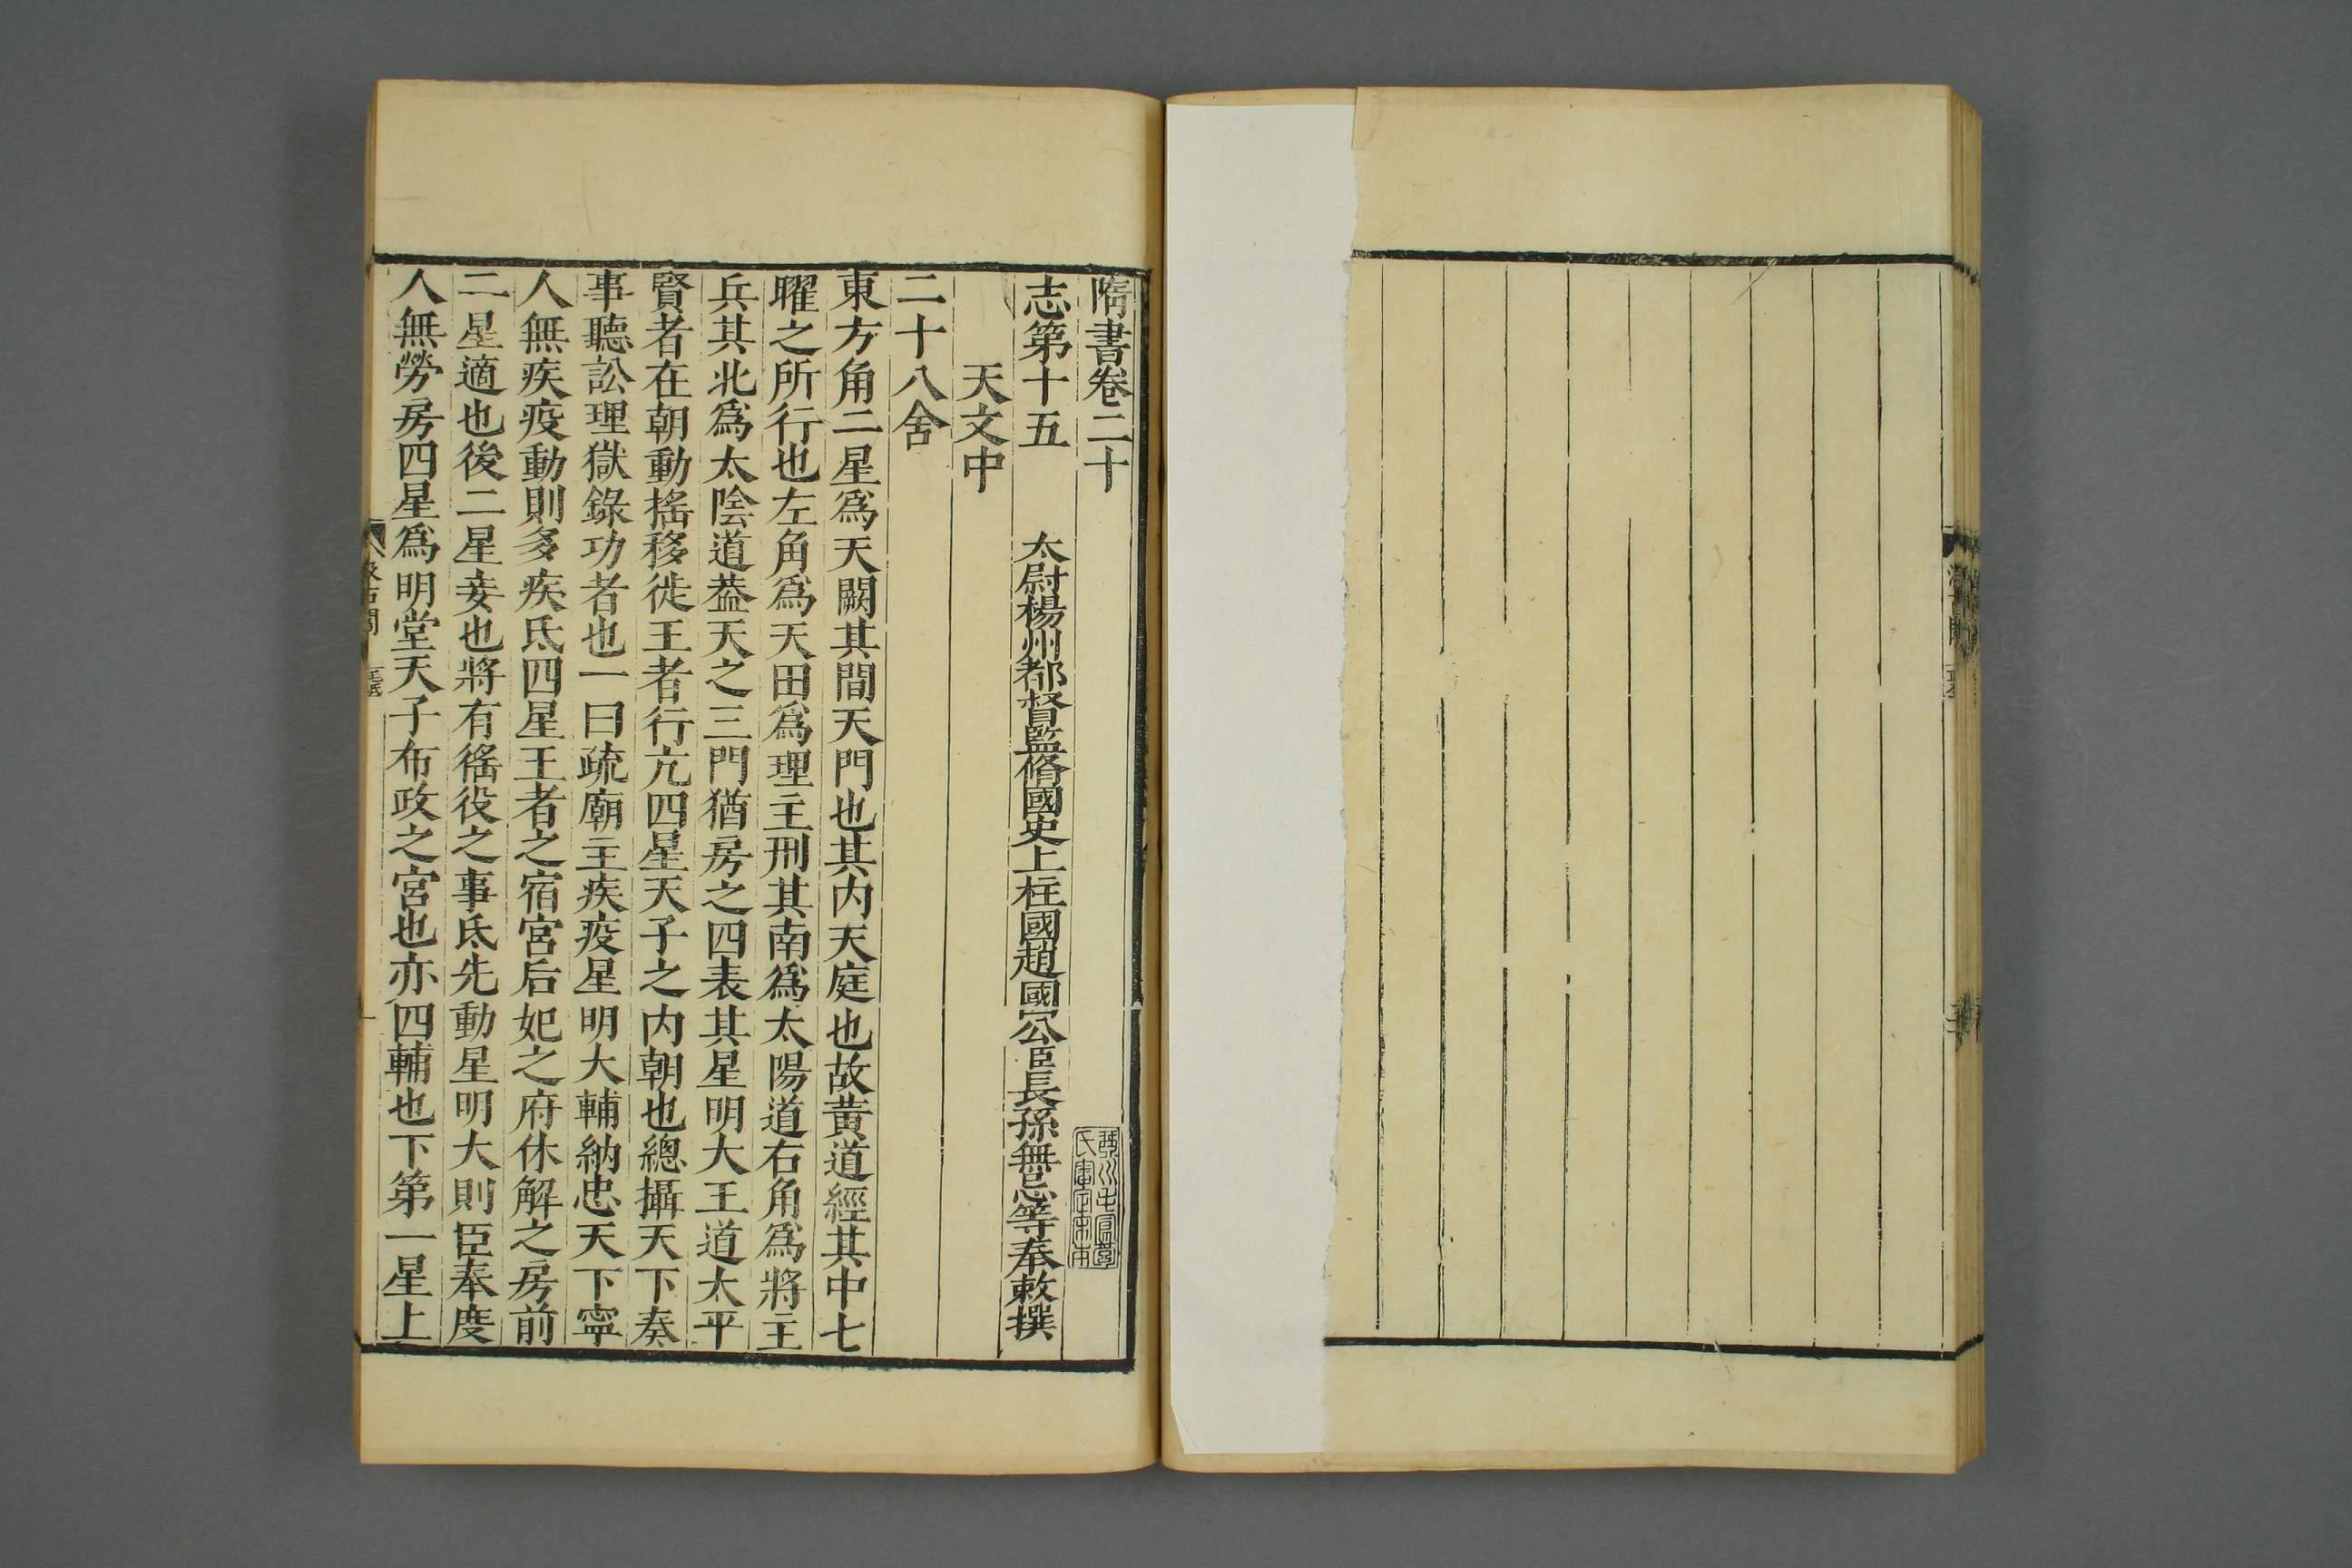 隋書卷二十
志第十五　太尉楊州都督監脩國史上柱國趙國公臣長孫無忌等奉敕撰
天文中
二十八舍
東方角二星爲天闕其間天門也其內天庭也故黃道經其中七
曜之所行也左角爲天田爲理主刑其南爲太陽道右角爲將主
兵其北爲太陰道葢天之三門猶房之四表其星明大王道太平
賢者在朝動搖移徙王者行亢四星天子之內朝也總攝天下奏
事聽訟理獄錄功者也一曰疏廟主疾疫星明大輔納忠天下寧
人無疾疫動則多疾氐四星王者之宿宮后妃之府休解之房前
二星適也後二星妾也將有徭役之事氐先動星明大則臣奉度
人無勞房四星爲明堂天子布政之宮也亦四輔也下第一星上